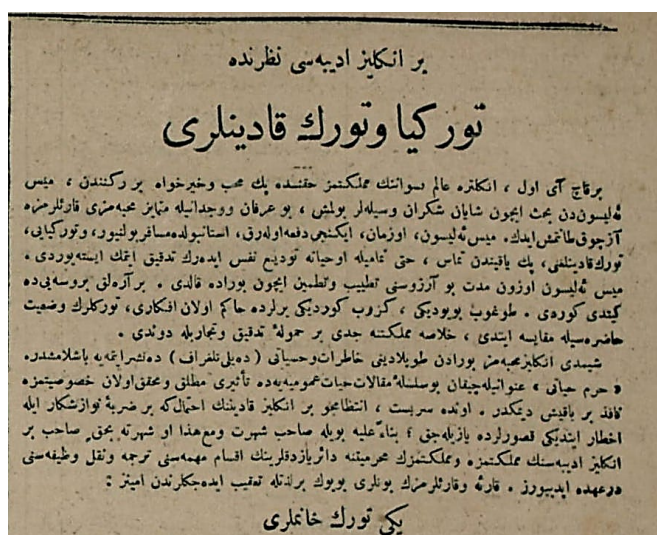 بر انكليز اديبه‌سى نظرنده
توركيا وتورك قادينلرى
برقاچ آى اول ، انكلتره عالم نسوانتك مملكتمز حقنده پك محب وخيرخواه بر ركنندن ، ميس
ئه‌ليسون‌دن بحث ايچون شايان شكران وسيله‌لر بولمش ، بو عرفان ووجدانيله متمايز محبه‌مزى قارئلرمزه
آزچوق طانتمش ايدك. ميس ئه‌ليسون، اوزمان، ايكنجى دفعه اوله‌رق، استانبولده مسافر بولنيور، وتوركيايى،
تورك قادينلغنى، پك ياقيندن تماس ، حتى تماميله اوحياته توديع نفس ايده‌رك تدقيق ايتمك ايسته‌يوردى .
ميس ئه‌ليسون اوزون مدت بو آرزوسنى تطييب وتطمين ايچون بوراده قالدى . بر آره‌لق بروسه‌يى‌ده
كيتدى كوردى . طوغوب بويوديكى ، كزوب كورديكى يرلرده حاكم اولان افكارى، توركلرك وضعيت
حاضره‌سيله مقايسه ايتدى ، خلاصه مملكتنه جدى بر حموله تدقيق وتجاربله دوندى .
شيمدى انكليز محبه‌مز بورادن طوپلاديغى خاطرات وحسياتى (ده‌يلى تلغراف) ده نشر ايتمه‌يه باشلامشدر.
« حرم حياتى » عنوانيله چيقان بو سلسلهٔ مقالات حيات عموميه‌يه‌ده تأثيرى مطلق ومحقق اولان خصوصيتمزه
نافذ بر باقيش ديكدر . اونده سربست ، انتظامجو بر انكليز قادينك احتمال كه بر ضربهٔ نوازشكار ايله
اخطار ايتديكى قصورلرده يازيله‌جق ؛ بناءً عليه بويله صاحب شهرت ومع‌هذا او شهرته بحق صاحب بر
انكليز اديبه‌سنك مملكتمزه ومملكتمزك محرميتنه دائر يازدقلرينك اقسام مهمه‌سنى ترجمه ونقل وظيفه‌سنى
درعهده ايدييورز . قارئه وقارئلرمزك بونلرى بويوك بر لذتله تعقيب ايده‌جكلرندن امينز :
يكى تورك خانملرى